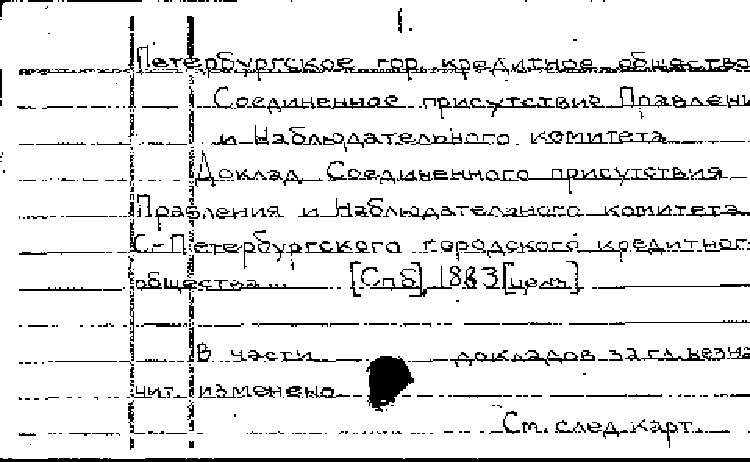 1.
Петербургское гор. кредитное общество
Соединенное присутствие Правлени
и Наблюдательного комитета
Доклад Соединенного присутствия
Правления и Наблюдательного комитета
С-Петербургского городского кредитного
общества... [Спб], 1883 [ценз.]
В части докладов загл. незна
чит. изменено
См. след. карт.